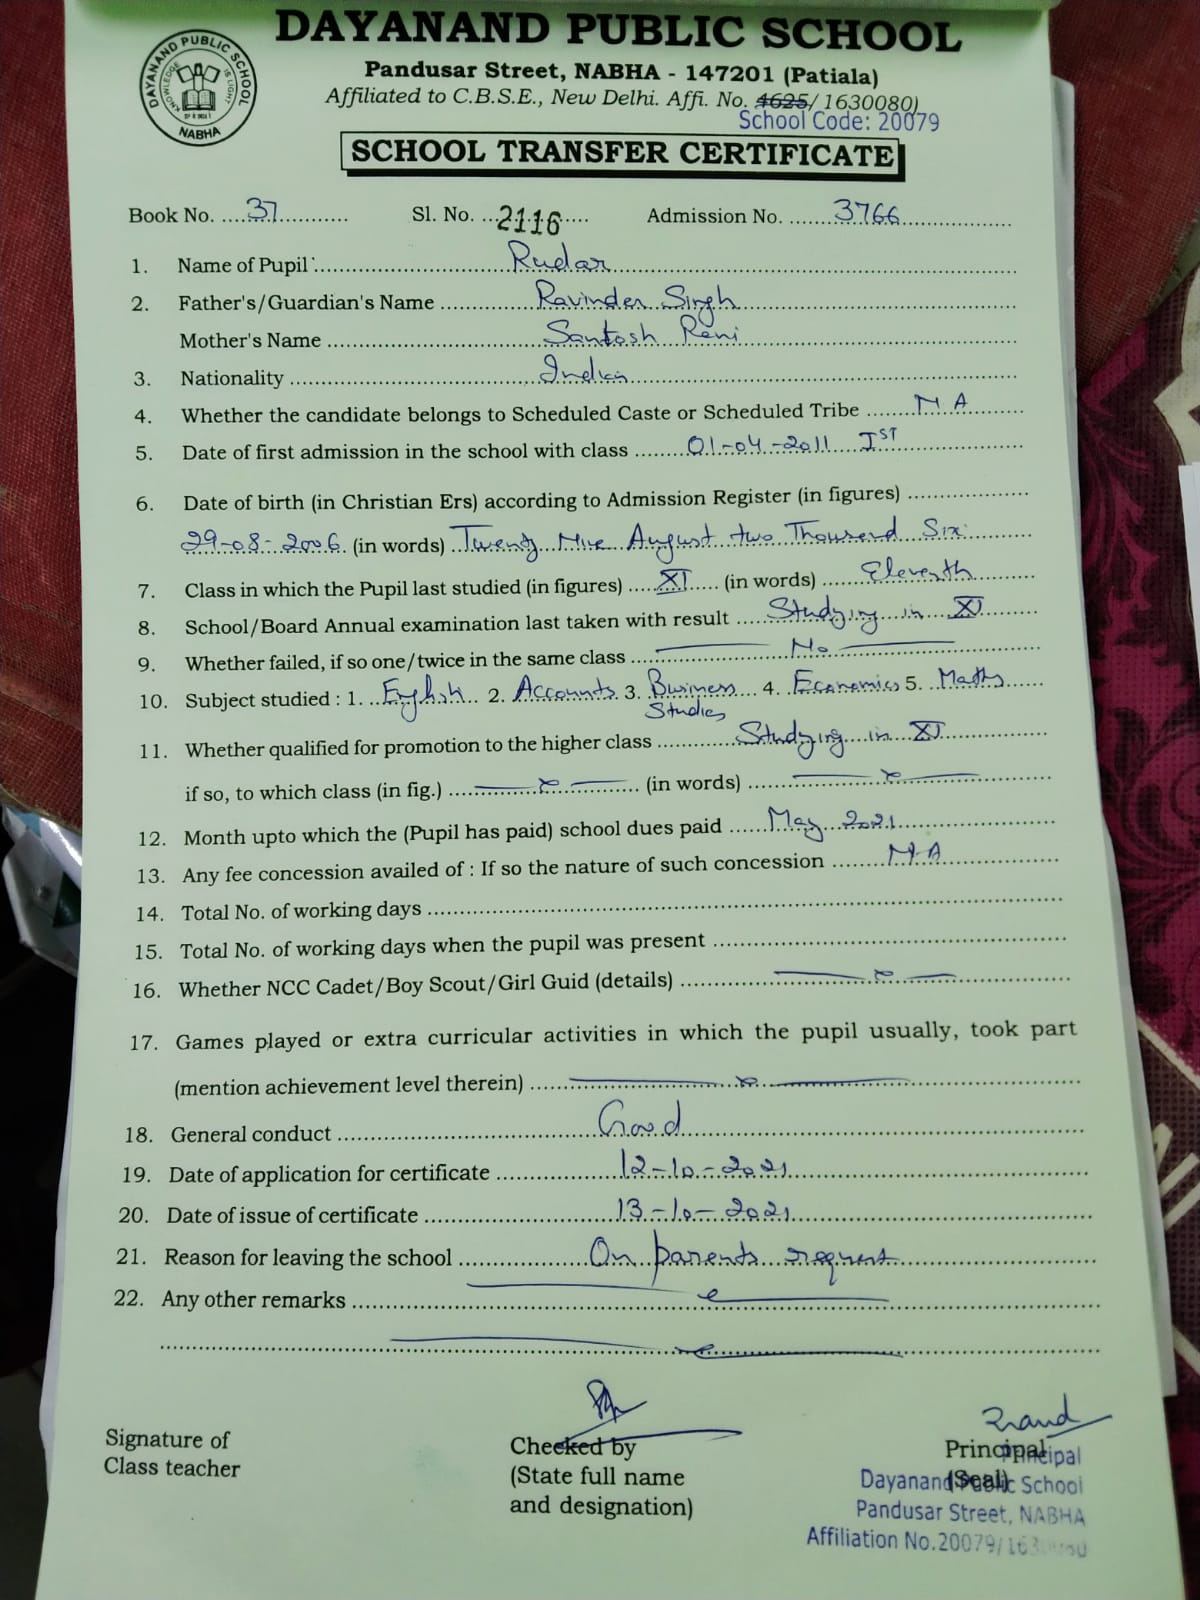 DAYANAND PUBLIC SCHOOL
DAYANAND PUBLIC SCHOOL
KNOWLEDGE IS LIGHT
NABHA
Pandusar Street, NABHA - 147201 (Patiala)
Affiliated to C.B.S.E., New Delhi. Affi. No. 4625/ 1630080)
School Code: 20079
SCHOOL TRANSFER CERTIFICATE
Book No. ....37............ Sl. No. ...2116..... Admission No. .......3766...................
1. Name of Pupil ......Rudar......
2. Father's/Guardian's Name ......Ravinder Singh......
Mother's Name ......Santosh Rani......
3. Nationality ......Indian......
4. Whether the candidate belongs to Scheduled Caste or Scheduled Tribe ......N A......
5. Date of first admission in the school with class ......01-04-2011 IST......
6. Date of birth (in Christian Ers) according to Admission Register (in figures) ......
29-08-2006. (in words) ..Twenty Nine August two Thousand Six......
7. Class in which the Pupil last studied (in figures) .....XI..... (in words) ......Eleventh......
8. School/Board Annual examination last taken with result .....Studying in XI......
9. Whether failed, if so one/twice in the same class ......No......
10. Subject studied : 1. ..English.. 2. Accounts 3. Business Studies 4. Economics 5. Maths......
11. Whether qualified for promotion to the higher class ......Studying in XI......
if so, to which class (in fig.) ...... (in words) ......
12. Month upto which the (Pupil has paid) school dues paid ......May 2021......
13. Any fee concession availed of : If so the nature of such concession ......N A......
14. Total No. of working days ......
15. Total No. of working days when the pupil was present ......
16. Whether NCC Cadet/Boy Scout/Girl Guid (details) ......
17. Games played or extra curricular activities in which the pupil usually, took part
(mention achievement level therein) ......
18. General conduct ......Good......
19. Date of application for certificate ......12-10-2021......
20. Date of issue of certificate ......13-10-2021......
21. Reason for leaving the school ......On parents request......
22. Any other remarks ......
Signature of
Class teacher
Checked by
(State full name
and designation)
Principal
(Seal)
Principal
Dayanand Public School
Pandusar Street, NABHA
Affiliation No.20079/